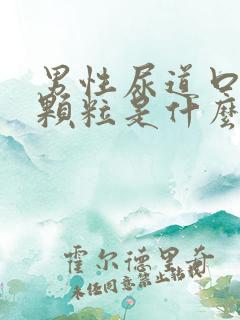 男性尿道口
顆粒是什麼
霍尔德里奇
未经同意禁止转载